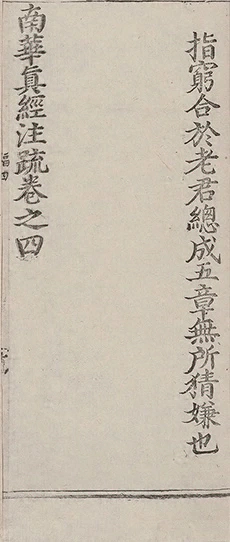 指窮合於老君總成五章無所猜嫌也
南華真經注疏卷之四